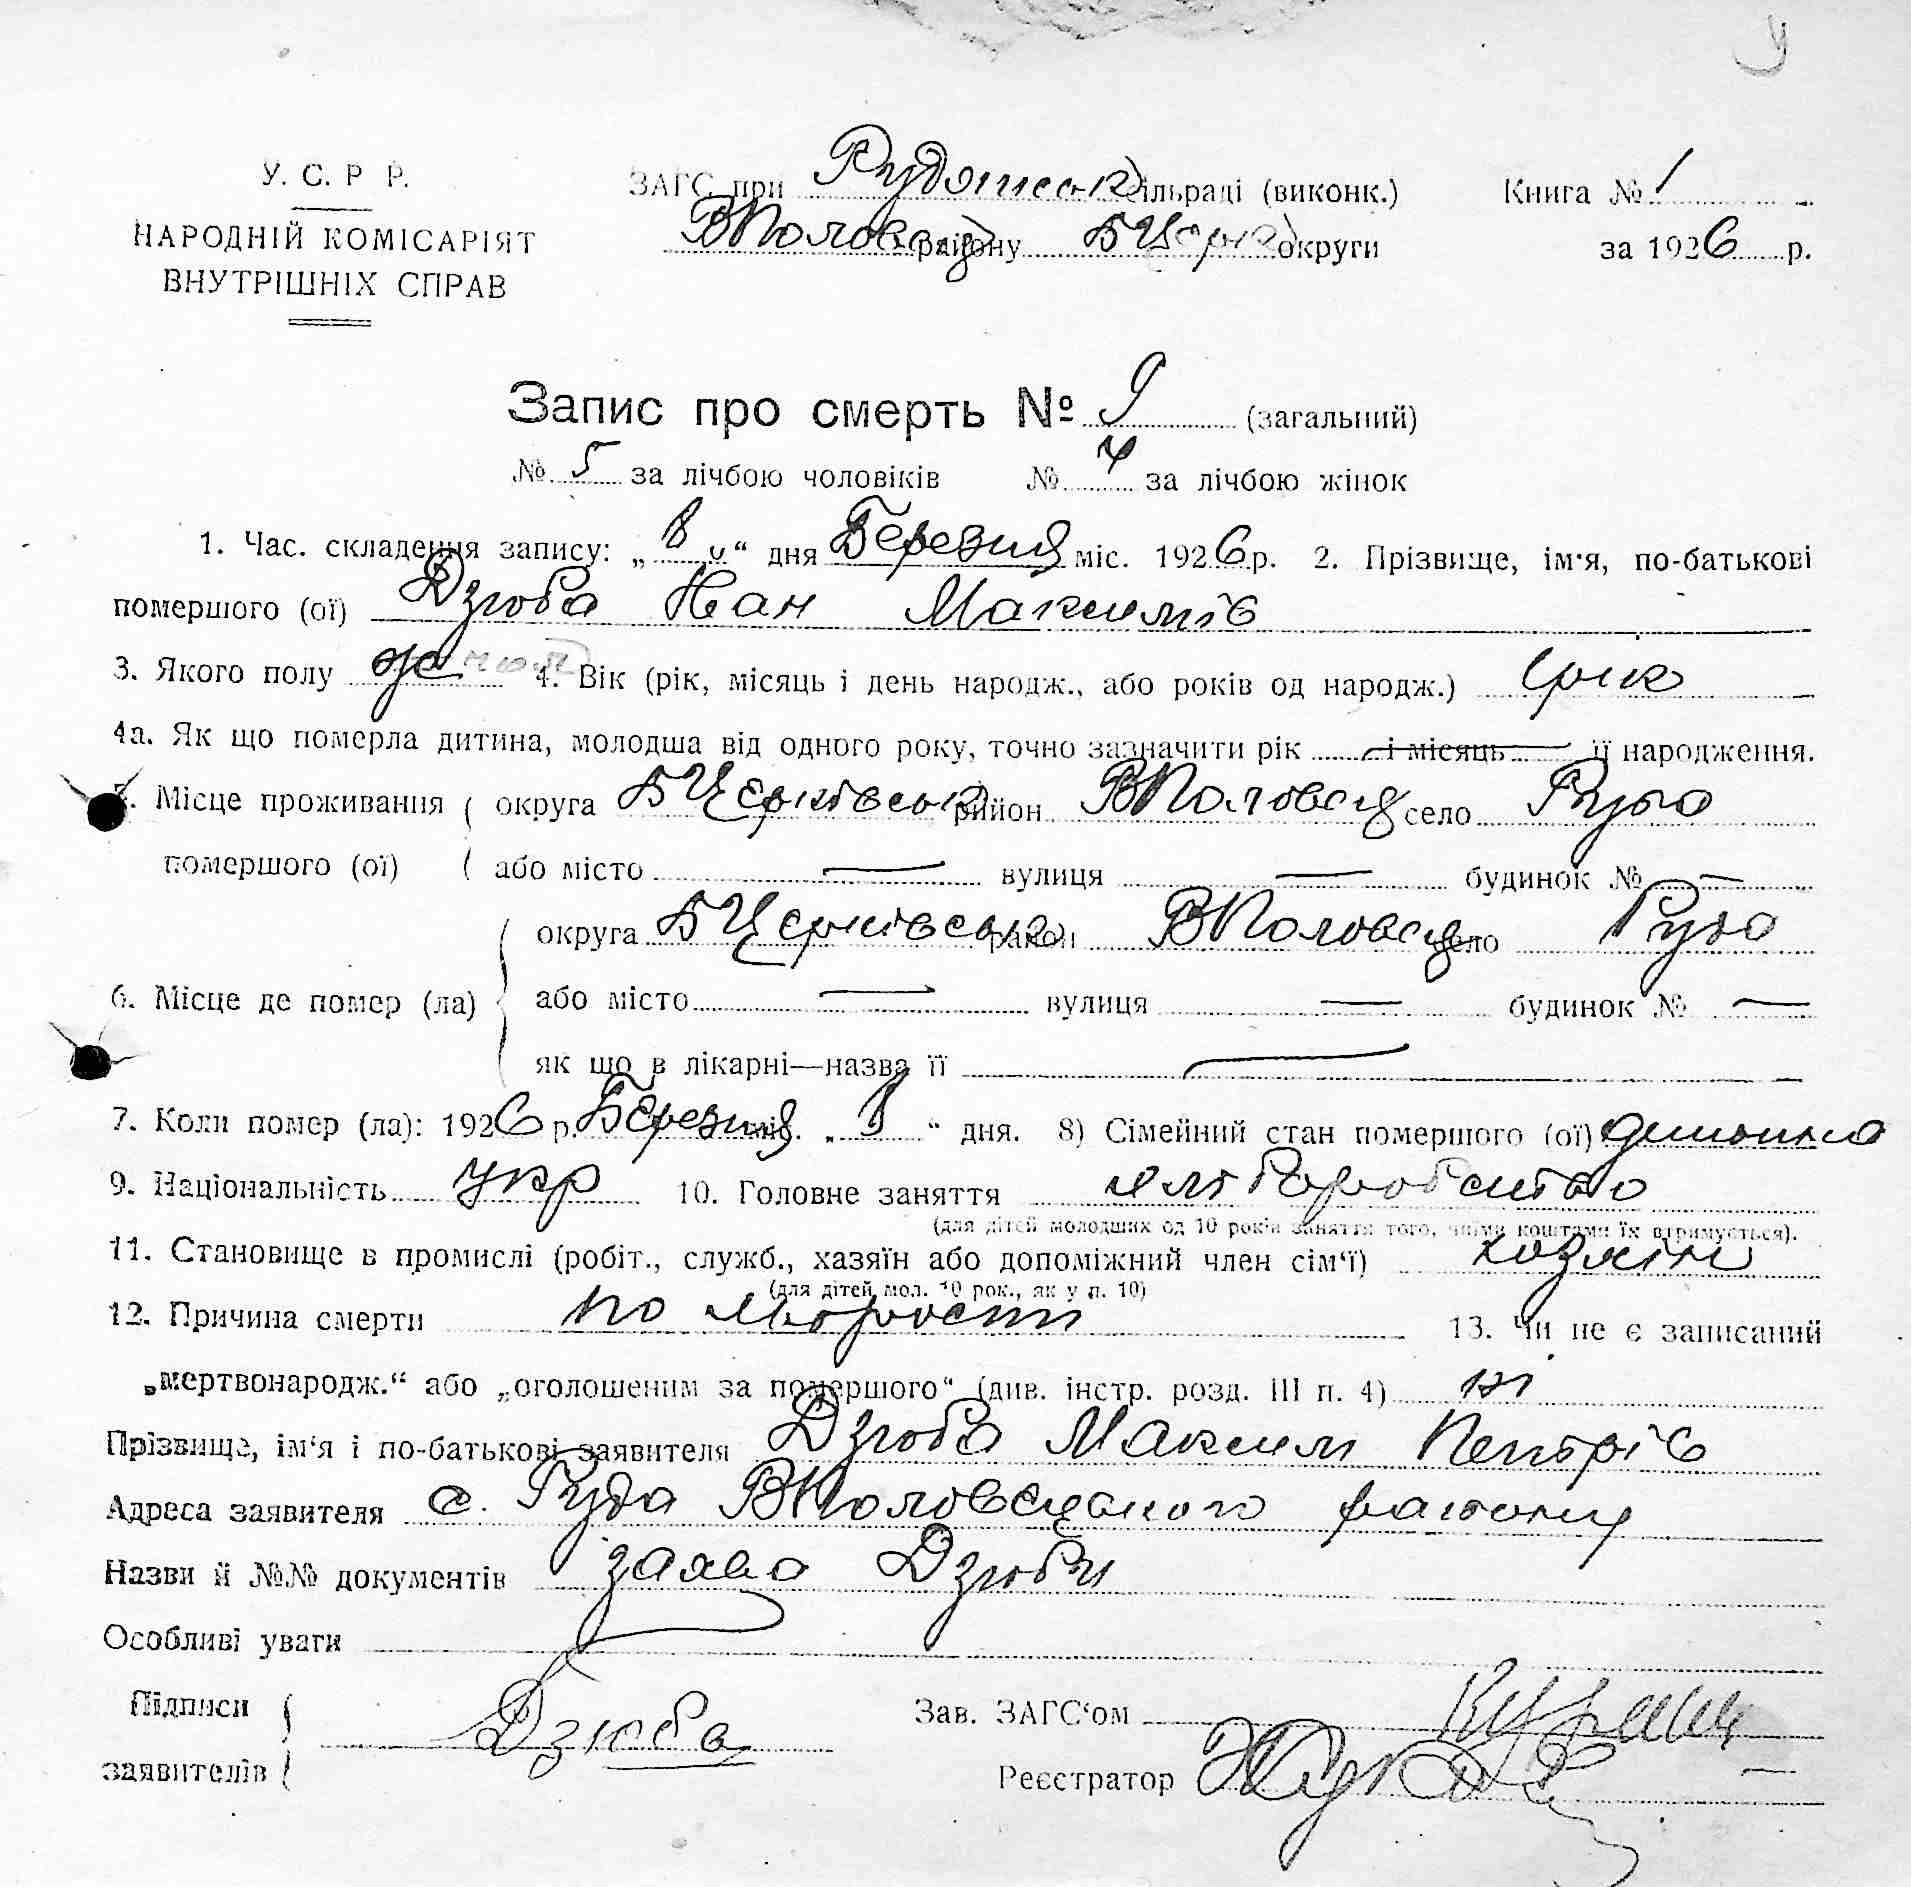 У. С. Р Р.
НАРОДНІЙ КОМІСАРІЯТ
ВНУТРІШНІХ СПРАВ
ЗАГС при Рудянськ сільраді (виконк.) Книга № 1
ВПоловец району БЦерк округи за 1926 р.
Запис про смерть № 9 (загальний)
№ 5 за лічбою чоловіків № 4 за лічбою жінок
1. Час. складення запису: „8“ дня Березня міс. 1926 р. 2. Прізвище, ім'я, по-батькові
помершого (ої) Дзюба Іван Максимів
3. Якого полу 4. Вік (рік, місяць і день народж., або років од народж.) 1 рік
4а. Як що померла дитина, молодша від одного року, точно зазначити рік — і місяць — її народження.
5. Місце проживання округа БЦерківськ район ВПоловец село Руда
помершого (ої) або місто — вулиця — будинок № —
округа БЦерківськ район ВПоловец село Руда
6. Місце де помер (ла) або місто — вулиця — будинок № —
як що в лікарні—назва її —
7. Коли помер (ла): 1926 р. Березня міс. „8“ дня. 8) Сімейний стан помершого (ої) дитина
9. Національність укр 10. Головне заняття хліборобство
(для дітей молодших од 10 років заняття того, чиїми коштами їх втримується).
11. Становище в промислі (робіт., служб., хазяїн або допоміжний член сім'ї) хозяїн
(для дітей мол. 10 рок., як у п. 10)
12. Причина смерти по 13. Чи не є записаний
„мертвонародж.“ або „оголошеним за помершого“ (див. інстр. розд. III п. 4) ні
Прізвище, ім'я і по-батькові заявителя Дзюба Максим Петрів
Адреса заявителя с. Руда ВПоловецького району
Назви й №№ документів заява Дзюби
Особливі уваги
Підписи
заявителів Дзюба
Зав. ЗАГС'ом
Реєстратор